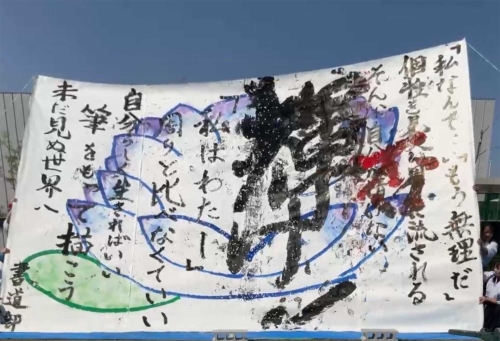 「私なんて…」「もう無理だ」
個性を見失い周りに流される
そんな自分
輝
「私はわたし」
周りと比べなくていい
自分らしく生きればいい
筆をもって描こう
未だ見ぬ世界へ
書道部